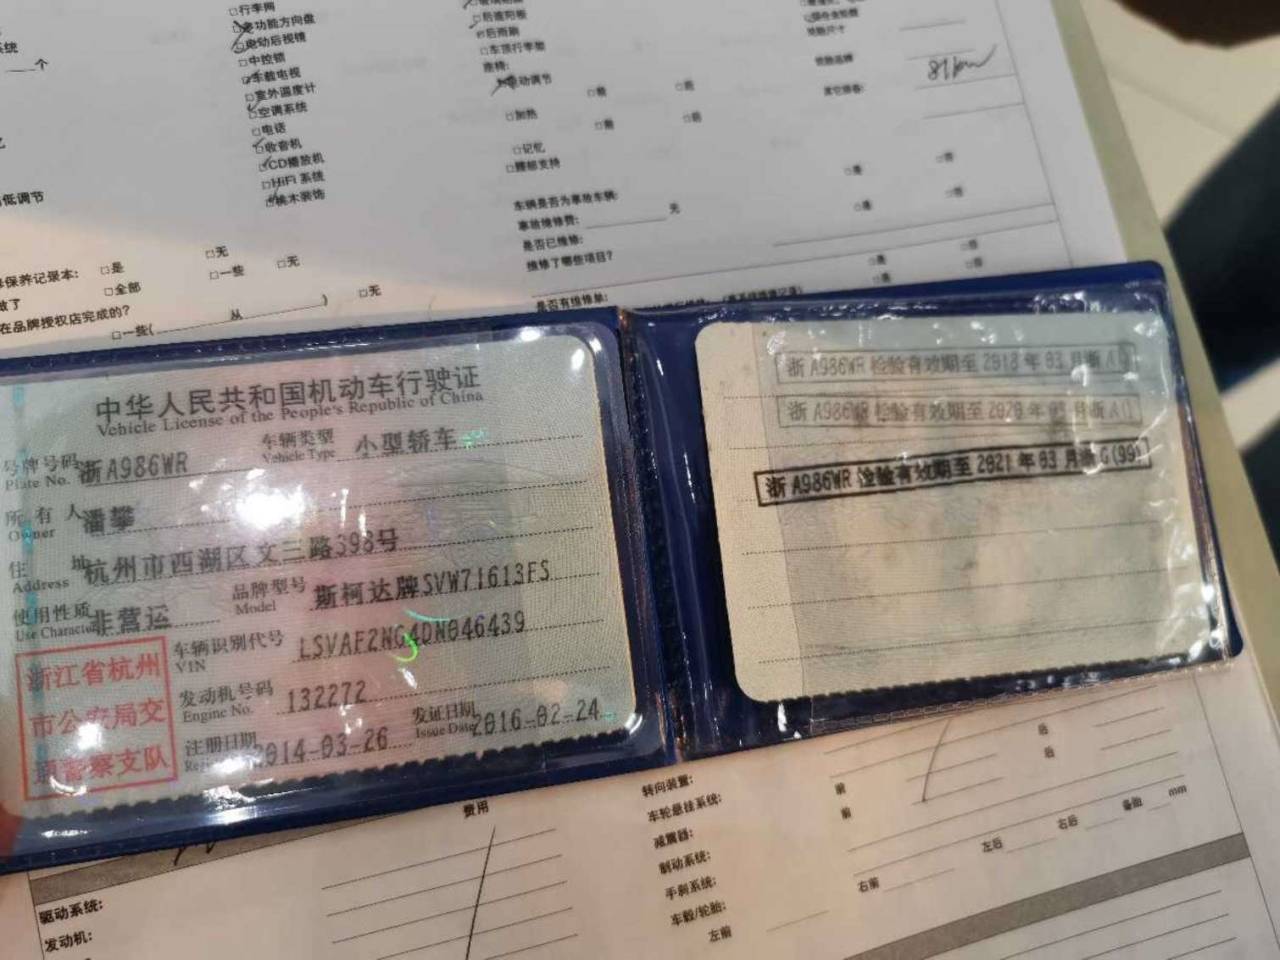 □行李网
□多功能方向盘
□电动后视镜
□中控锁
□车载电视
□室外温度计
□空调系统
□电话
□收音机
□CD播放机
□HiFi 系统
□桃木装饰
系统
个
低调节
□后遮阳板
□后雨刷
□车顶行李架
座椅:
□电动调节
□加热
□记忆
□腰部支持
车辆是否为事故车辆: □是 □否
事故维修费: 元
是否已维修: □是 □否
维修了哪些项目?
是否有维修单: □是 □否
轮胎尺寸
轮胎品牌
81km
保养记录本: □是 □无
□全部 □一些 □无
在品牌授权店完成的?
□一些( 从 ) □无
中华人民共和国机动车行驶证
Vehicle License of the People's Republic of China
号牌号码 浙A986WR 车辆类型 小型轿车
Plate No. Vehicle Type
所有人 潘攀
Owner
住址 杭州市西湖区文三路398号
Address
使用性质 非营运 品牌型号 斯柯达牌SVW71613FS
Use Character Model
车辆识别代号 LSVAF2NG4DN046439
VIN
发动机号码 132272
Engine No.
注册日期 2014-03-26 发证日期 2016-02-24
Issue Date
浙江省杭州
市公安局交
通警察支队
浙A986WR 检验有效期至 2018 年 03 月浙A
浙A986WR 检验有效期至 2020 年 03 月浙A
浙A986WR 检验有效期至 2021 年 03 月浙G(99)
费用
驱动系统:
发动机:
转向装置: 前 后
车轮悬挂系统: 前 后
减震器:
制动系统:
手刹系统:
车毂/轮胎: 右前 左后 右后 备胎 mm
左前